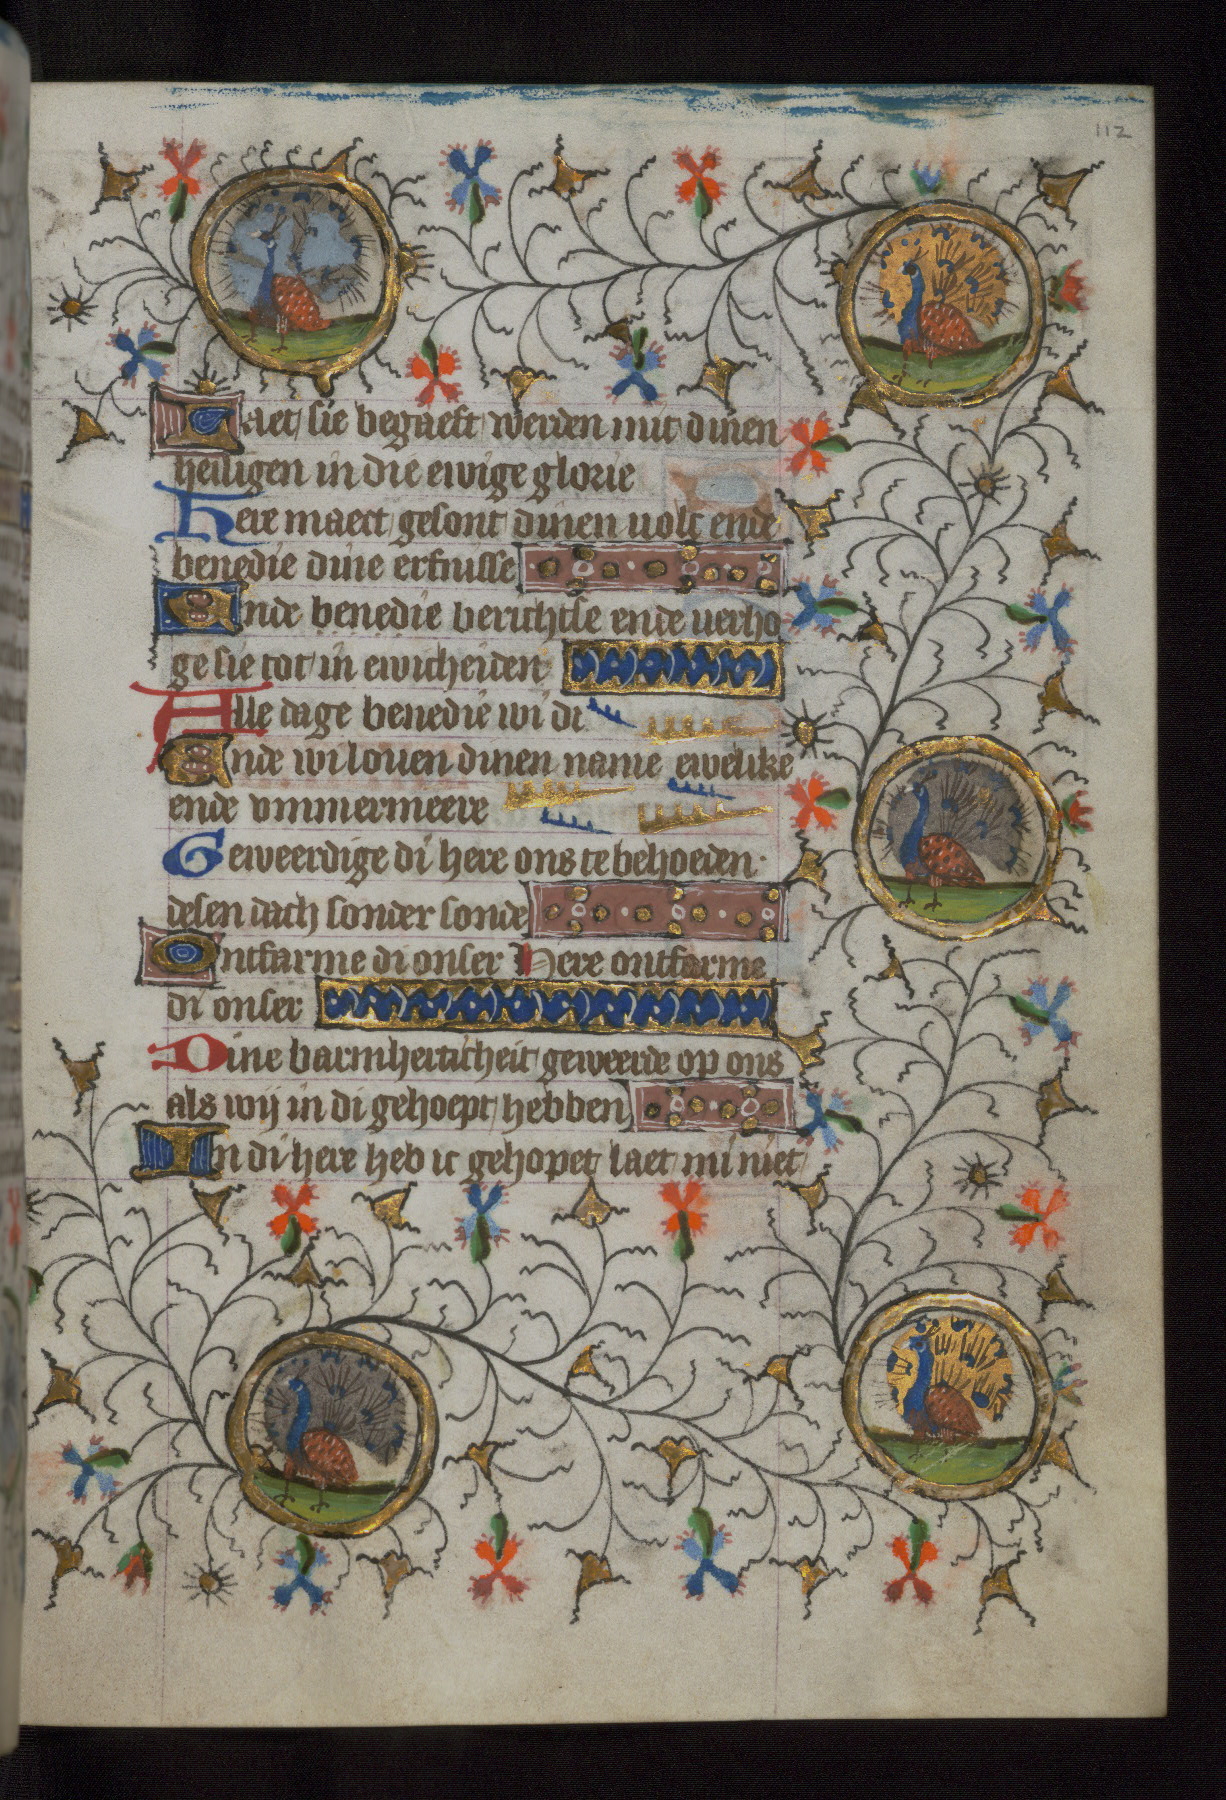 112
Laet sie begaeft werden mit dinen
heiligen in die ewige glorie
Here maect gesont dinen volc ende
benedie dine erfnisse
Ende benedie berichtse ende verho
ge sie tot in ewicheiden
Alle dage benedie wi di
Ende wi louen dinen name ewelike
ende vmmermeere
Geweerdige di here ons te behoeden
desen dach sonder sonde
Ontfarme di onser Here ontfarme
di onser
Dine barmherticheit geweerde op ons
als wij in di gehoept hebben
In di here heb ic gehopet laet mi niet